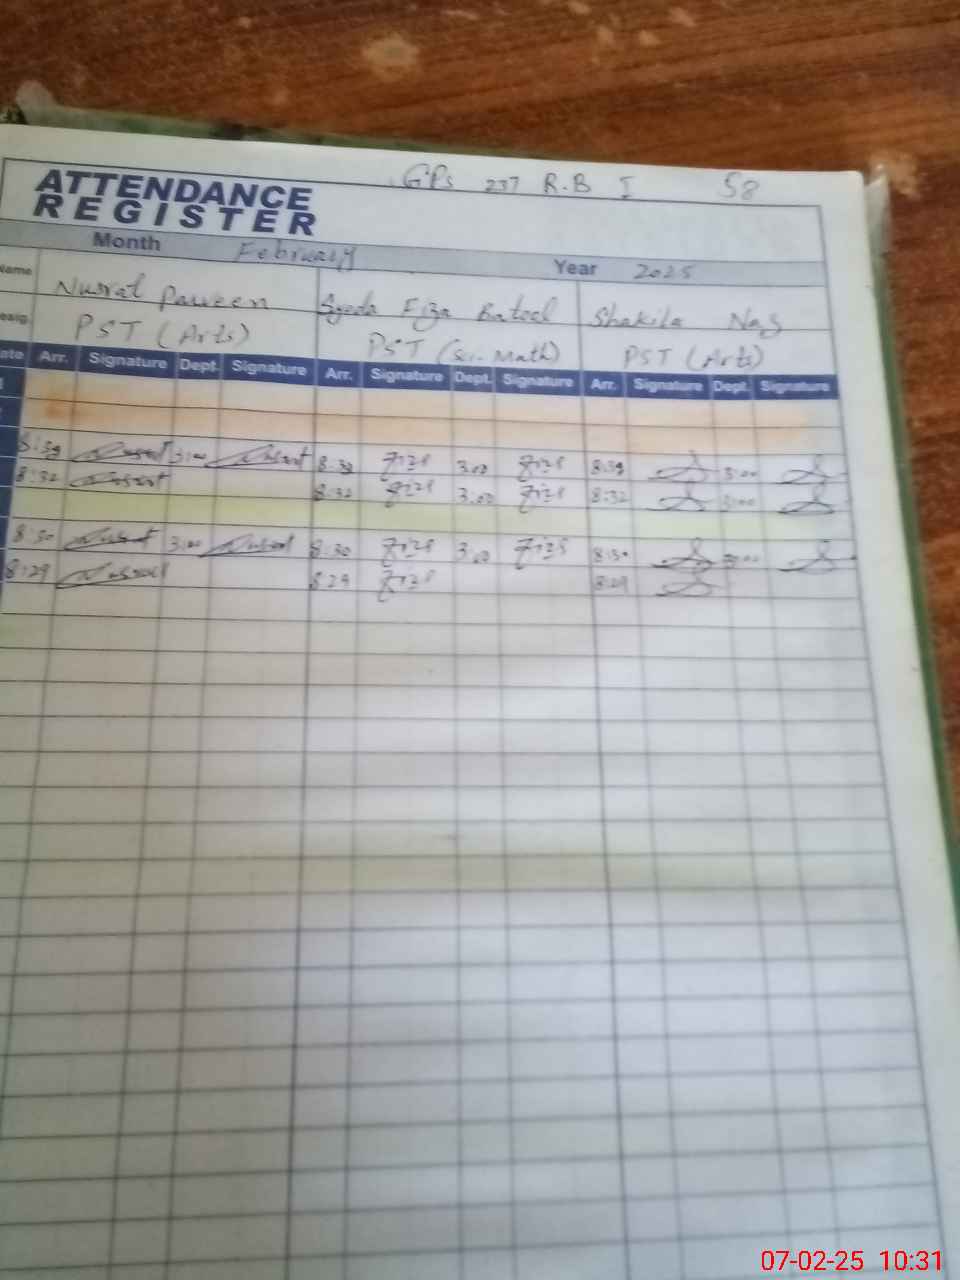 GPS 237 R.B I 58
ATTENDANCE
REGISTER
Month February Year 2025
Name Nusrat Parveen Syeda Fiza Batool Shakila Naz
PST (Arts) PST (Sci-Math) PST (Arts)
Arr. Signature Dept. Signature Arr. Signature Dept. Signature Arr. Signature Dept. Signature
8:39 Nusrat 3:00 Nusrat 8:39 Fiza 3.00 Fiza 8:39 3:00
8:32 Nusrat 8:32 Fiza 3.00 Fiza 8:32 3:00
8:30 Nusrat 3:00 Nusrat 8:30 Fiza 3.00 Fiza 8:30 3:00
8:29 Nusrat 8:29 Fiza 8:29
07-02-25 10:31